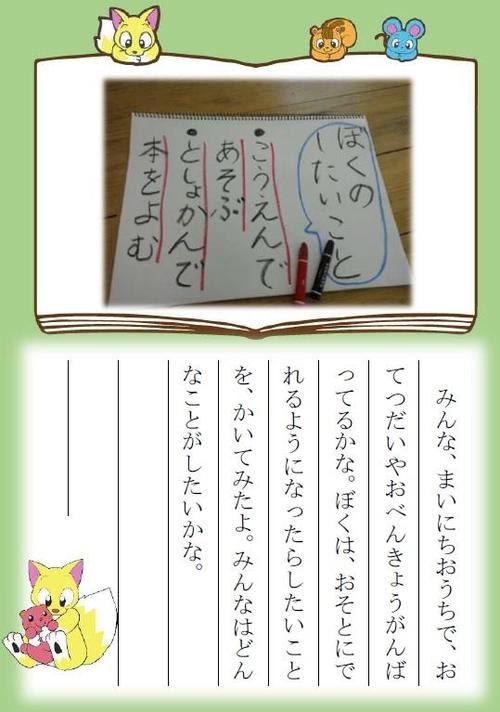 ぼくの
したいこと
●こうえんで
あそぶ
●としょかんで
本をよむ
みんな、まいにちおうちで、お
てつだいやおべんきょうがんば
ってるかな。ぼくは、おそとにで
れるようになったらしたいこと
を、かいてみたよ。みんなはどん
なことがしたいかな。